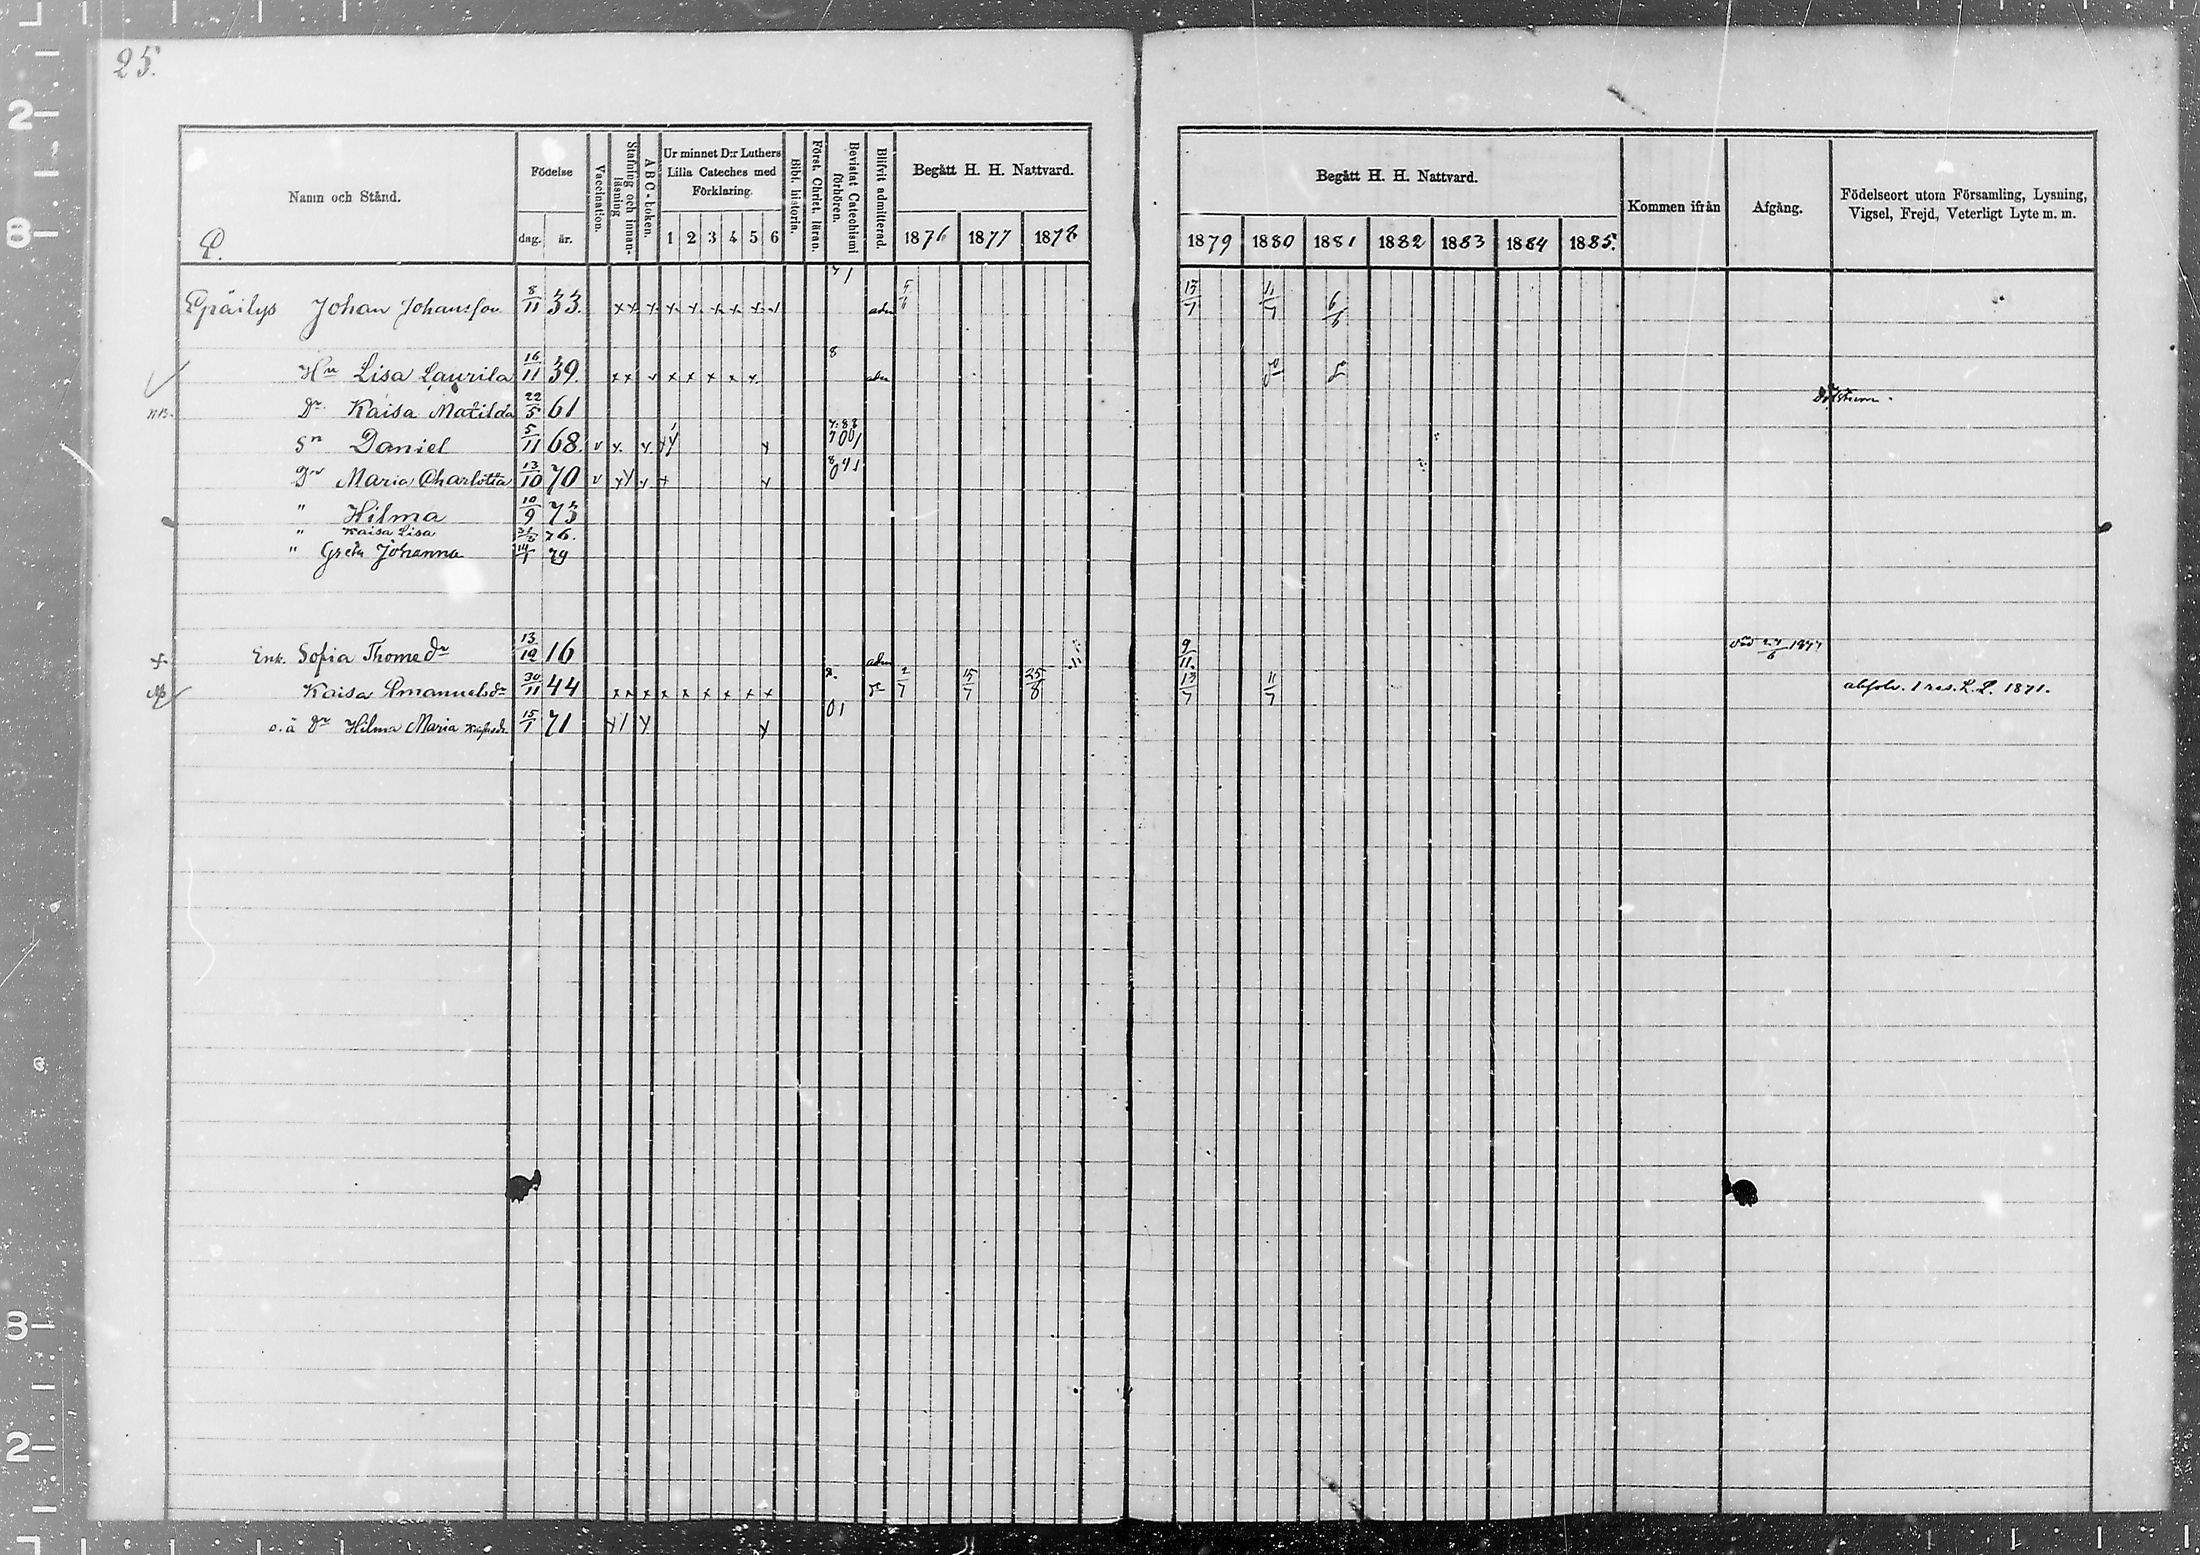 25.
Namn och Stånd.
P.
Födelse
dag. år.
Vaccination.
Stafning och innanläsning
ABC-boken.
Ur minnet D:r Luthers Lilla Cateches med Förklaring.
1 2 3 4 5 6
Bibl. historia.
Först. Christ. läran.
Bevistat Catechismi förhören.
Blifvit admitterad.
Begått H. H. Nattvard.
1876 1877 1878
Begått H. H. Nattvard.
1879 1880 1881 1882 1883 1884 1885.
Kommen ifrån
Afgång.
Födelseort utom Församling, Lysning, Vigsel, Frejd, Veterligt Lyte m. m.
Epäilys Johan Johansson 8/11 33. adm 5/6 13/7 11/7 6/6
Hu Lisa Laurila 16/11 39. 8 adm
NB. Dr Kaisa Matilda 22/5 61 Döfstum.
Sn Daniel 5/11 68.
Dr Maria Charlotta 13/10 70
" Hilma 10/9 73
" Kaisa Lisa 76.
" Greta Johanna 14/1 79
Enk. Sofia Thomedr 13/12 16 adm 9/11. död 27/6 1877
Kaisa Emanuelsdr 30/11 44 2/7 15/7 25/8 13/7 11/7 absolv. 1 res. L. L. 1871.
o.ä Dr Hilma Maria 15/1 71 01